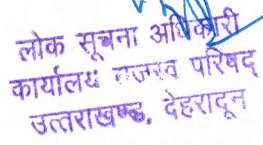 लोक सूचना अधिकारी
कार्यालय राजस्व परिषद्
उत्तराखण्ड, देहरादून